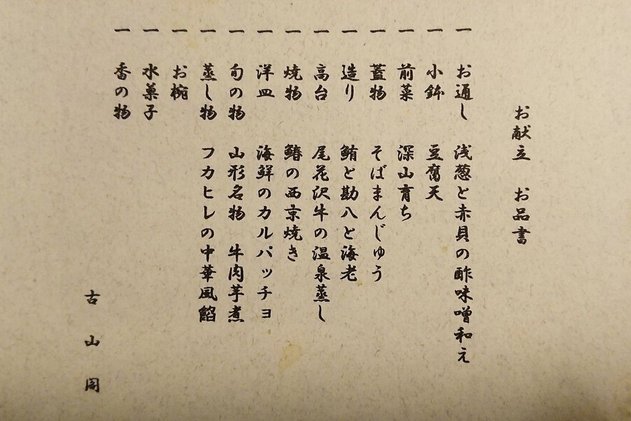 お献立 お品書
一 お通し 浅葱と赤貝の酢味噌和え
一 小鉢 豆腐天
一 前菜 深山育ち
一 蓋物 そばまんじゅう
一 造り 鮪と勘八と海老
一 高台 尾花沢牛の温泉蒸し
一 焼物 鰆の西京焼き
一 洋皿 海鮮のカルパッチョ
一 旬の物 山形名物 牛肉芋煮
一 蒸し物 フカヒレの中華風餡
一 お椀
一 水菓子
一 香の物
古山閣